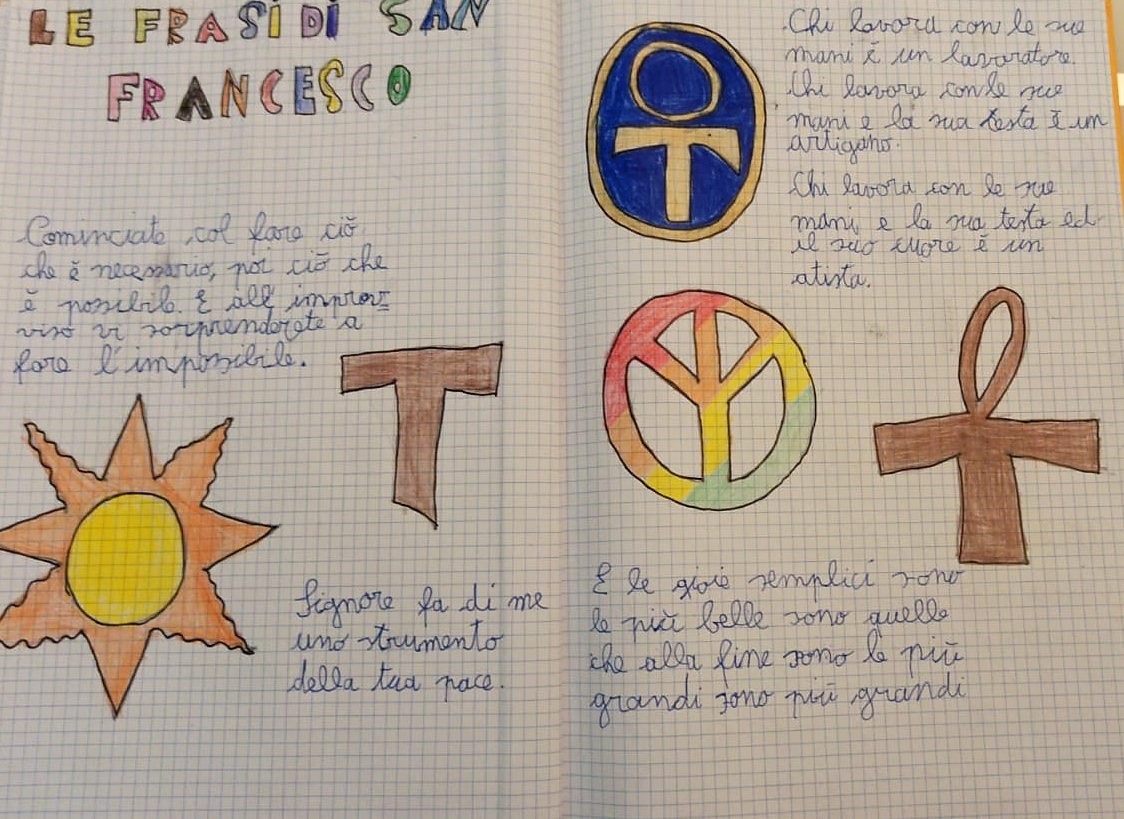 LE FRASI DI SAN
FRANCESCO
Cominciate col fare ciò
che è necessario, poi ciò che
è possibile. E all'improv=
viso vi sorprenderete a
fare l'impossibile.
Signore fa di me
uno strumento
della tua pace.
Chi lavora con le sue
mani è un lavoratore.
Chi lavora con le sue
mani e la sua testa è un
artigano.
Chi lavora con le sue
mani, e la sua testa ed
il suo cuore è un
atista.
E le gioie semplici sono
le più belle sono quelle
che alla fine sono le più
grandi sono più grandi